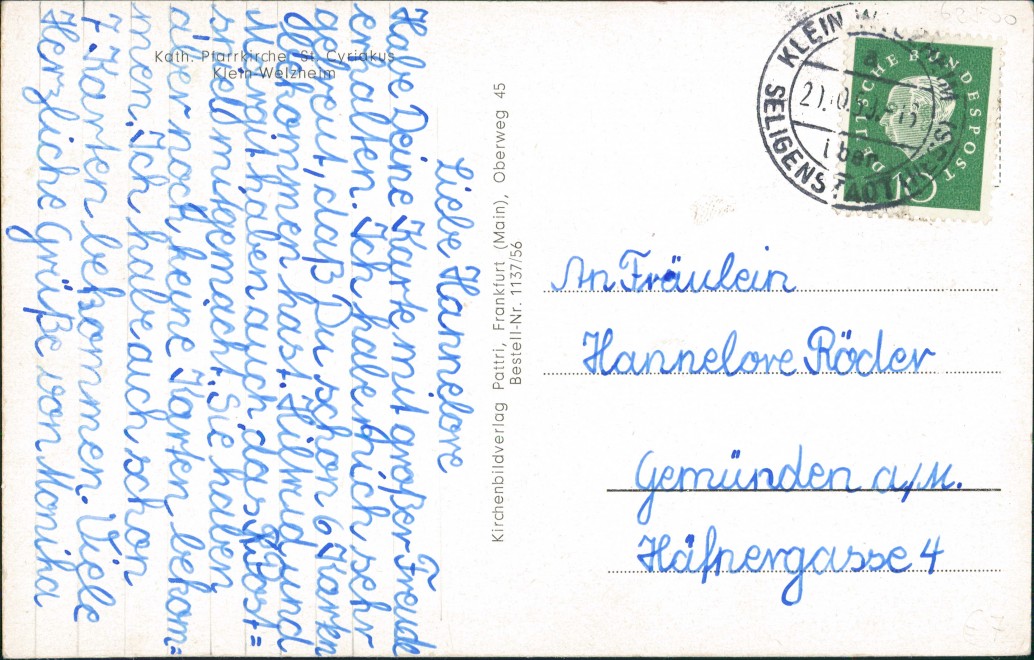 Kath. Pfarrkirche St. Cyriakus
Klein-Welzheim
Liebe Hannelore
Habe Deine Karte mit großer Freude
erhalten. Ich habe mich sehr
gefreut, daß Du schon 6 Karen
bekommen hast. Hiltrud und
Margit haben auch das Post=
spiel mitgemacht. Sie haben
aber noch keine Karten bekom=
men. Ich habe auch schon
7 Karten bekommen. Viele
Herzliche grüße von Monika
Kirchenbildverlag Pattri, Frankfurt (Main), Oberweg 45
Bestell-Nr. 1137/56
KLEIN
über
SELIGENSTADT (HESS)
DEUTSCHE BUNDESPOST
10
An Fräulein
Hannelore Röder
Gemünden a/M.
Häfnergasse 4
€ 7